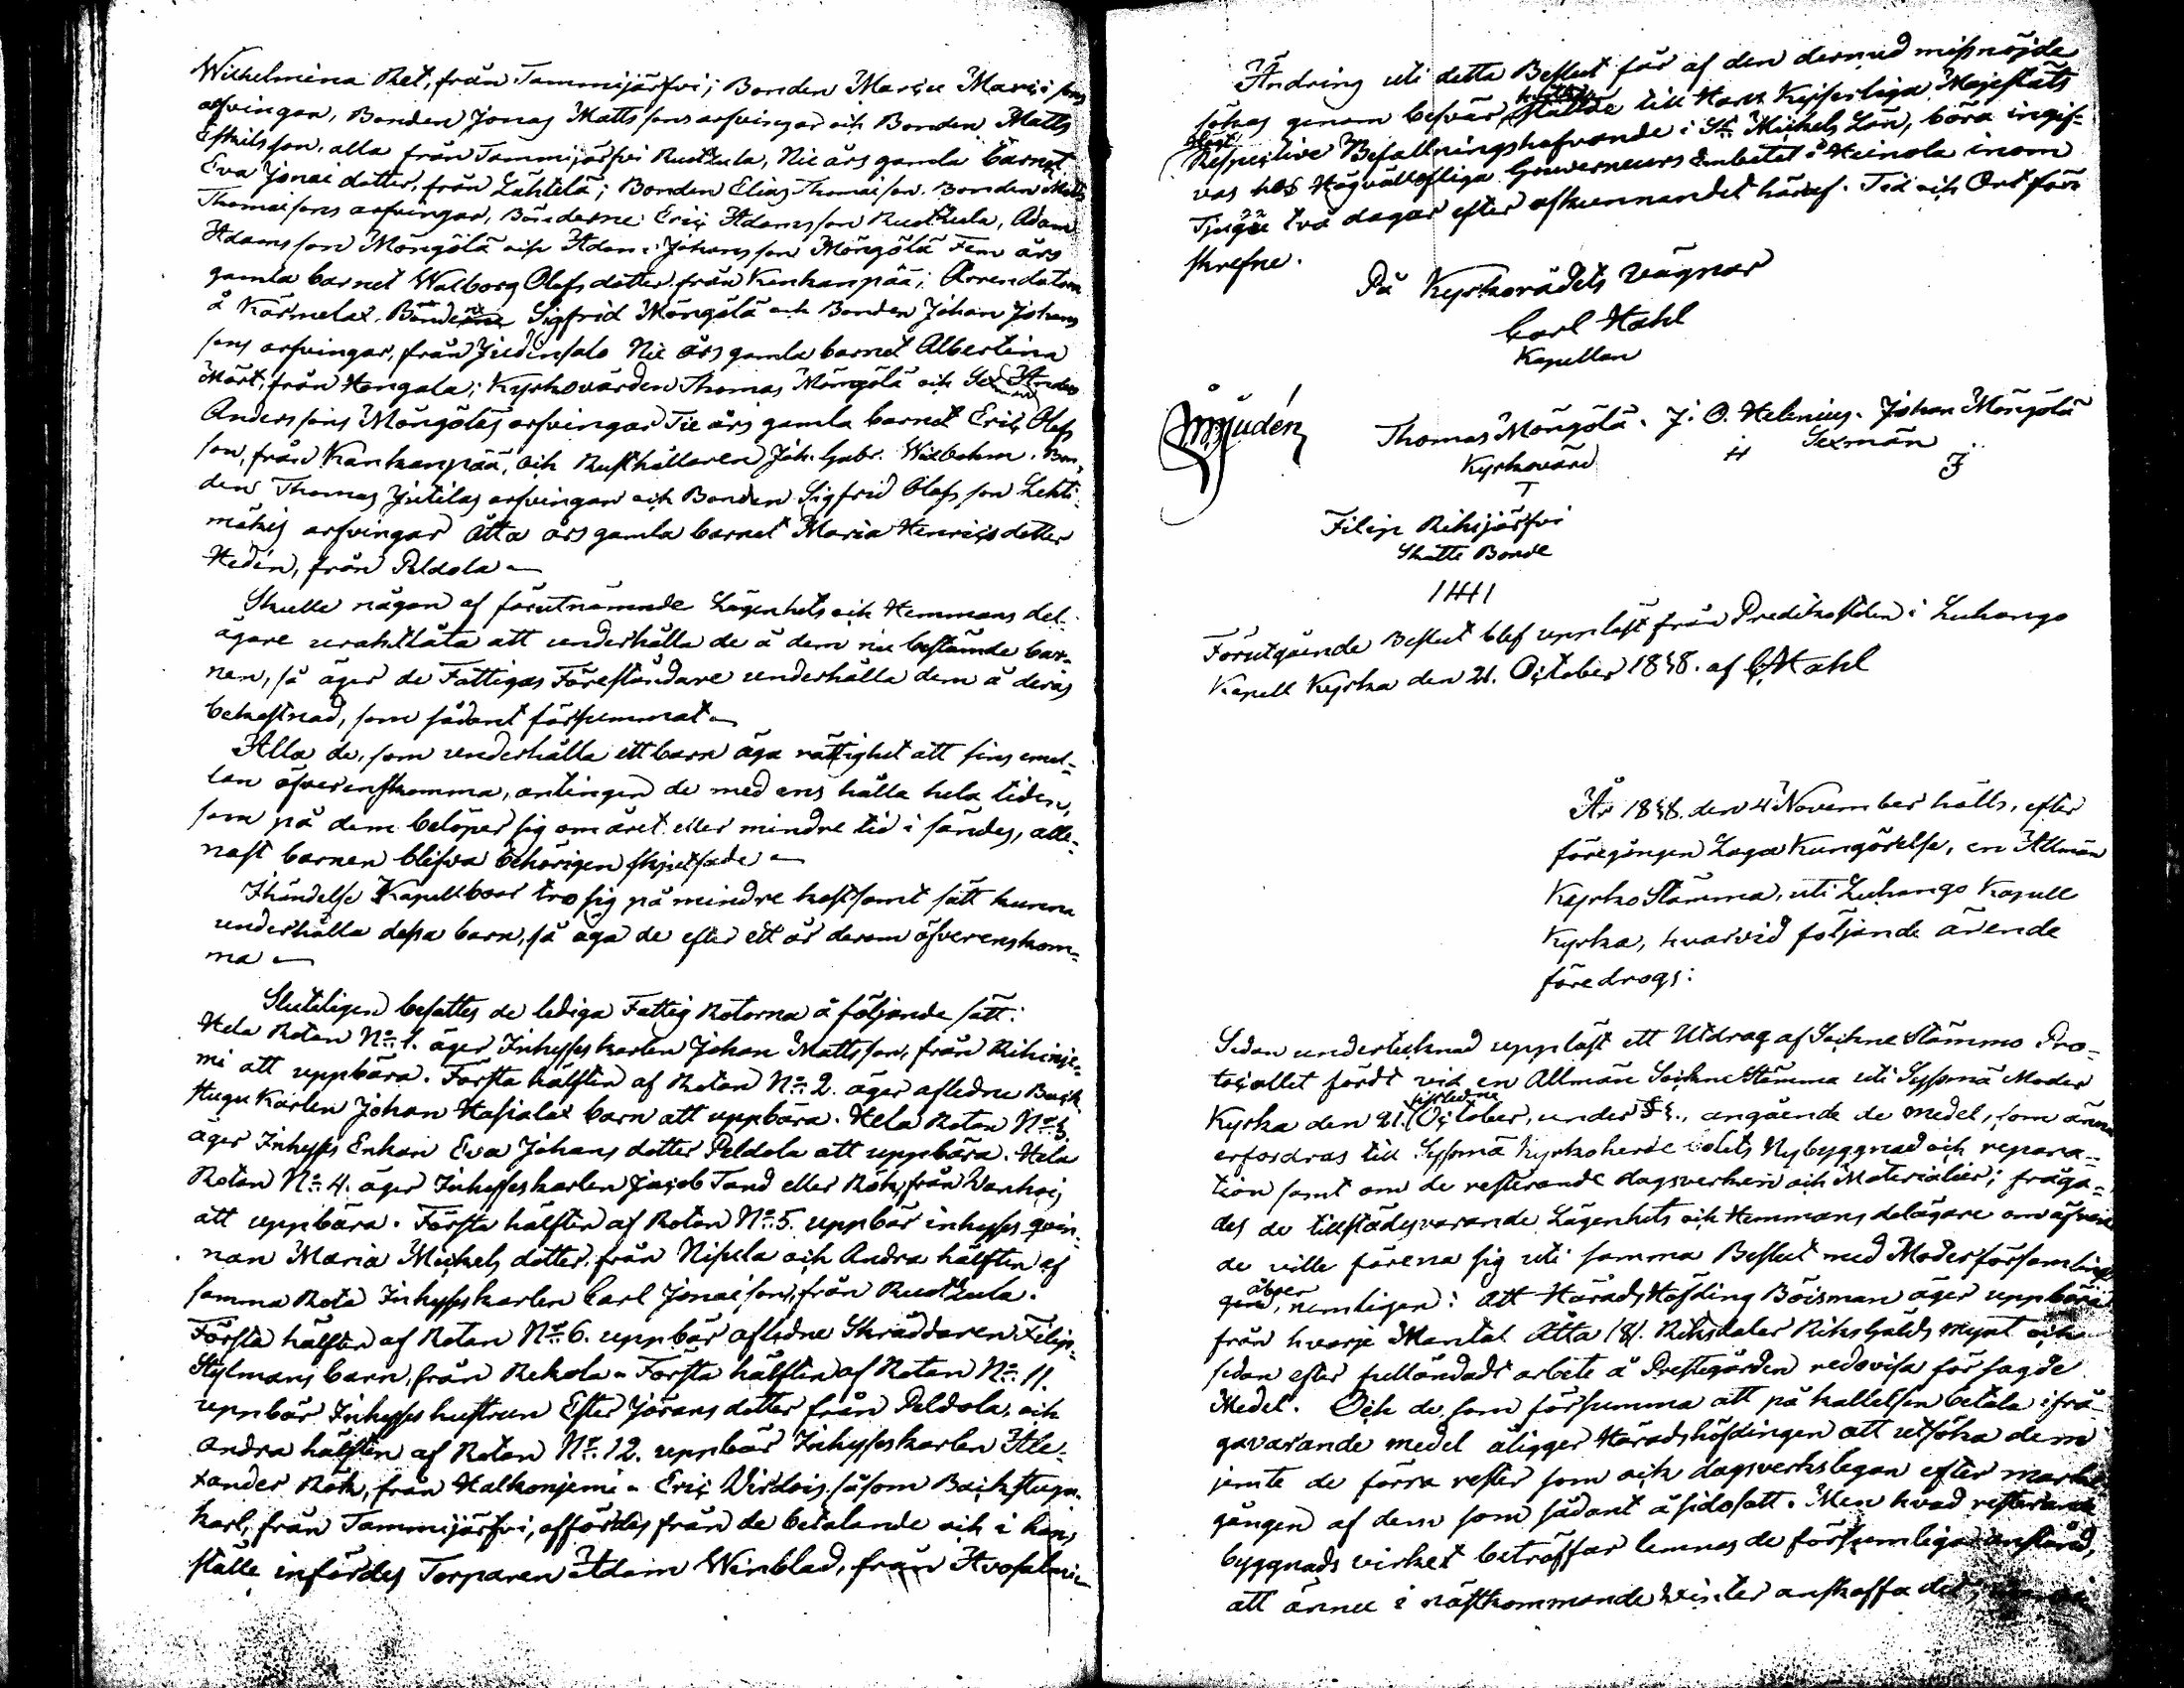 Wilhelmina Ret, från Tammijärfvi; Bonden Marcu Marcisons
arfvingar, Bonden Jonas Mattssons arfvingar och Bonden Matts
Eskilsson, alla från Tammijärfvi Rutzula, Nie års gamla barnet
Eva Jonaedotter, från Lähtelä; Bonden Elias Thomaeson. Bonden Matts
Thomaesons arfvingar, Bönderne Eric Adamsson Rutzula, Adam
Adamsson Möngölä och Adam Johansson Möngölä Fem års
gamla barnet Walborg Olofsdotter från Kankanpää; Arrendatorn
å Kärmelax Bonden Sigfrid Möngölä och Bonden Johan Johans
sons arfvingar, från Judinsalo Nie års gamla barnet Albertina
Mört, från Hongala; Kyrkovärden Thomas Möngölä och Sexman Anders
Anderssons Möngöläs arfvingar Tie års gamla barnet Eric Olofs
son, från Kankanpää, och Rusthållaren Joh. Gabr. Widbohm, Bon-
den Thomas Jutilas arfvingar och Bonden Sigfrid Olofsson Lehti-
mäkis arfvingar Åtta års gamla barnet Maria Henricsdotter
Hedén, från Peldola
Skulle någon af förutnämnde Lägenhets och Hemmans del-
ägare uraktlåta att underhålla de å dem nu bestämde bar-
nen, så äger de Fattigas Föreståndare underhålla dem å deras
bekostnad, som sådant försummat
Alla de, som underhålla ett barn äga rättighet att sins emel-
lan öfverenskomma, antingen de med ens hålla hela tiden,
som på dem belöper sig om året eller mindre tid i sänder, alle-
nast barnen blifva behörigen skjutsade
I händelse Kapellboar tro sig på mindre kostsamt sätt kunna
underhålla dessa barn, så äga de efter ett år derom öfverenskom-
ma
Slutligen besattes de lediga Fattig Rotorna å följande sätt:
Hela Rotan No 1. äger Inhysseskarlen Johan Mattsson, från Rihinje-
mi att uppbära. Första hälften af Rotan No 2. äger aflidne Back-
stugu Karlen Johan Hasialax barn att uppbära. Hela Rotan No 3.
äger Inhysses Enkan Eva Johansdotter Peldola att uppbära. Hela
Rotan No 4. äger Inhysseskarlen Jacob Tand eller Rök, från
att uppbära. Första hälften af Rotan No 5. uppbär inhysses qvin-
nan Maria Mickelsdotter från Nisula och Andra hälften af
samma Rota Inhysseskarlen Carl Jonaeson, från Rutzula.
Första hälften af Rotan No 6. uppbär aflidne Skräddaren Filip
Stylmans barn, från Rekola. Första hälften af Rotan No 11.
uppbär Inhysses hustrun Ester Göransdotter från Peldola, och
andra hälften af Rotan No 12. uppbär Inhysseskarlen Ale-
xander Rök, från Halkonjemi. Eric Virdois, såsom Backstugu-
karl, från Tammijärfvi, affördes från de betalande och i hans
ställe infördes Torparen Adam Winblad, från
Ändring uti detta Beslut får af den dermed missnöjde
sökas genom besvär, ställde till Hans Kejserliga Majestäts
Respective Befallningshafvande i St Mickels Län, böra ingif-
vas hos Högvällofliga Gouverneurs Embetet i Heinola inom
Tjugu två dagar efter afkunnandet häraf. Tid och Ort före
skrefne.
På Kyrkorådets vägnar
Carl Hahl
Kapellan
Thomas Möngölä. J. O. Helenius. Johan Möngölä
Kyrkovärd H Sexmän J
T
Filip Rihijärfvi
Skatte Bonde
Förutgående Beslut blef uppläst från Predikostolen i Luhango
Kapell Kyrka den 21. October 1838. af C. Hahl
År 1838. den 4 November hölls, efter
föregången Laga Kungörelse, en Allmän
Kyrko Stämma, uti Luhango Kapell
Kyrka, hvarvid följande ärende
föredrogs:
Sedan undertecknad uppläst ett Utdrag af Sockne Stämmo Pro-
tocollet fördt vid en Allmän Sockne Stämma uti Sysmä Moder
Kyrka den 21. sistledne October, angående de medel, som ännu
erfordras till Sysmä Kyrkoherde bolets Nybyggnad och repara-
tion samt om de resterande dagsverken och Materialier; fråga-
des de tillstädesvarande Lägenhets och Hemmans delägare om äfven
de ville förena sig uti samma Beslut med Moderförsamlin-
gens, nemligen: Att Härads Höfding Boisman äger uppbära
från hvarje Mantal Åtta /8/. Riksdaler Riksgälds mynt och
sedan efter fulländadt arbete å Prestegården redovisa för sagde
Medel. Och de som försumma att på kallelsen betala ifrå-
gavarande medel åligger Häradshöfdingen att utsöka dem
jemte de förra rester som och dagsverkslegan efter marke-
gången af dem som sådant åsidosatt. Men hvad resterande
byggnads virket beträffar lemnas de försumliga anstånd,
att ännu i nästkommande winter anskaffa det,